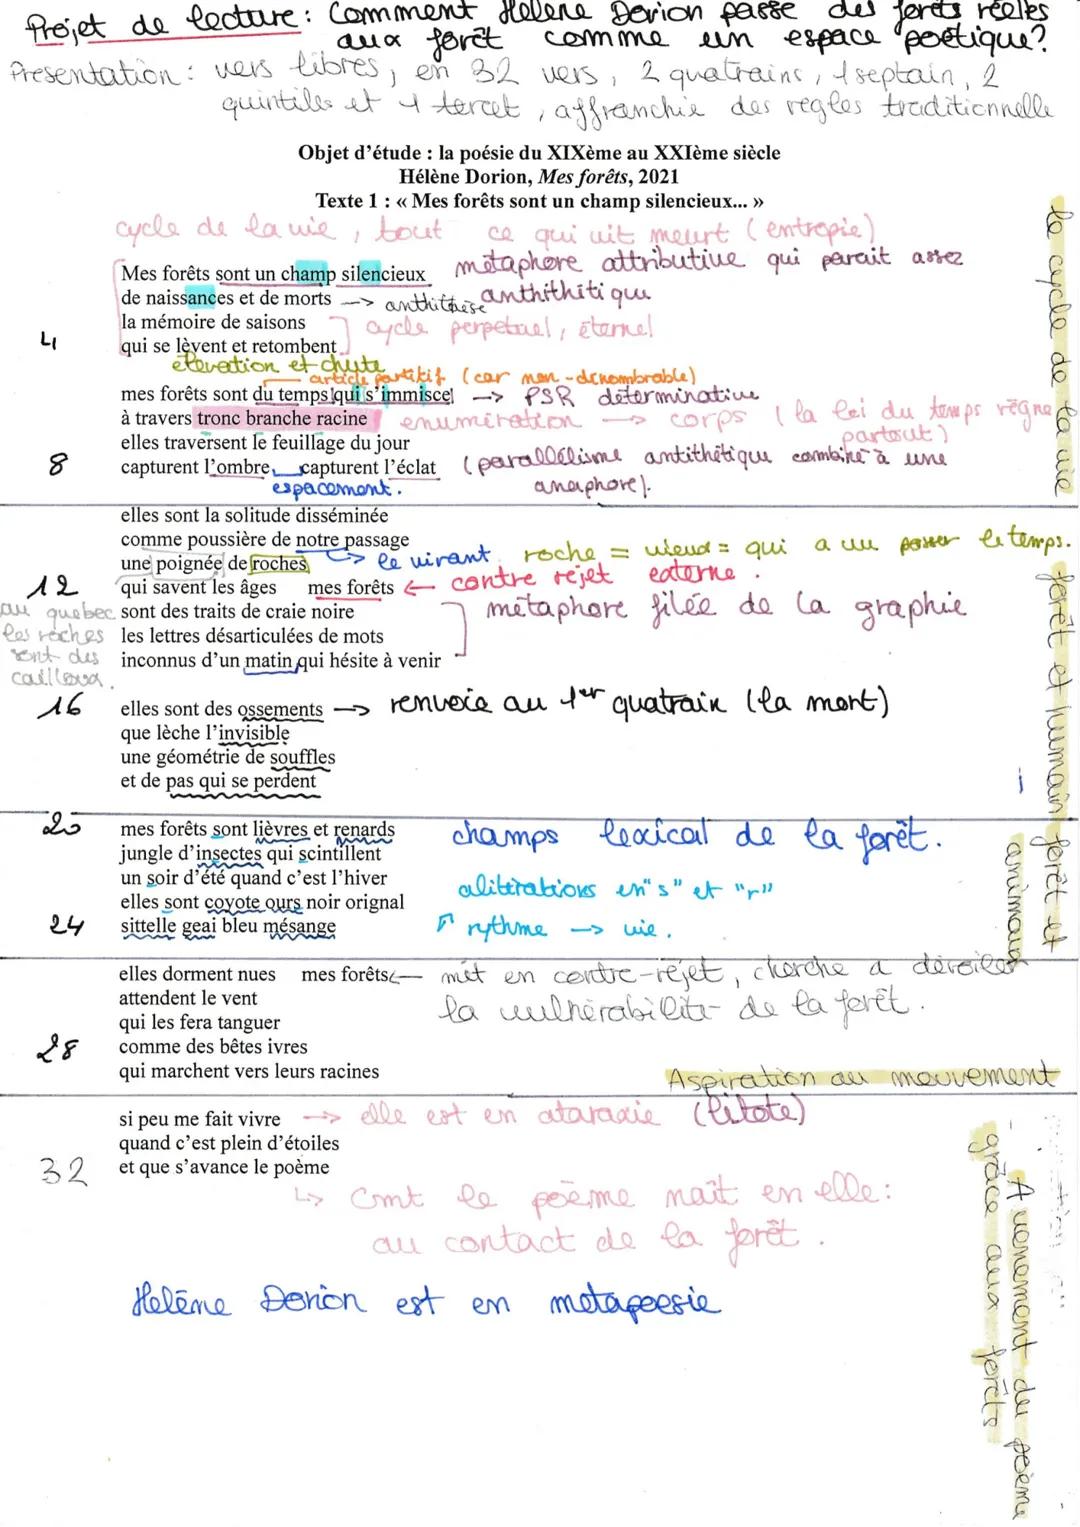 Projet de lecture : Comment Hélène Dorion passe des forêts réelles
aux forêt comme un espace poétique?
Présentation : vers libres, en 32 vers, 2 quatrains, 1 septain, 2
quintils et 1 tercet, affranchie des règles traditionnelle
Objet d'étude : la poésie du XIXème au XXIème siècle
Hélène Dorion, Mes forêts, 2021
Texte 1 : « Mes forêts sont un champ silencieux... »
cycle de la vie, tout ce qui vit meurt (entropie)
Mes forêts sont un champ silencieux métaphore attributive qui parait assez
de naissances et de morts --> anthithèse anthithitique
la mémoire de saisons cycle perpetuel, éternel
4 qui se lèvent et retombent
élevation et chute
article partitif (car non-dénombrable)
mes forêts sont du temps qui s'immisce --> PSR déterminative
à travers tronc branche racine enumération --> corps (la loi du temps règne
partout)
elles traversent le feuillage du jour
8 capturent l'ombre capturent l'éclat (parallélisme antithétique combiné à une
espacement. anaphore).
elles sont la solitude disséminée
comme poussière de notre passage
une poignée de roches --> le vivant roche = vieux = qui a vu passer le temps.
12 qui savent les âges mes forêts <- contre rejet externe.
au quebec sont des traits de craie noire métaphore filée de la graphie
les roches les lettres désarticulées de mots
sont des inconnus d'un matin qui hésite à venir
cailloux.
16 elles sont des ossements --> renvoie au 1er quatrain (la mort)
que lèche l'invisible
une géométrie de souffles
et de pas qui se perdent
20 mes forêts sont lièvres et renards champs lexical de la forêt.
jungle d'insectes qui scintillent
un soir d'été quand c'est l'hiver alitérations en "s" et "r"
elles sont coyote ours noir orignal
24 sittelle geai bleu mésange ↗ rythme --> vie.
elles dorment nues mes forêts <-- mit en contre-rejet, cherche a dévoiler
attendent le vent la vulnérabilité de la forêt.
qui les fera tanguer
28 comme des bêtes ivres
qui marchent vers leurs racines
Aspiration au mouvement
si peu me fait vivre --> elle est en ataraxie (litote)
quand c'est plein d'étoiles
32 et que s'avance le poème
↳ Cmt le poème naît en elle :
au contact de la forêt.
Helène Dorion est en metapoesie
le cycle de la vie
forêt et humain
forêt et
animaux
- Avenement du poème
grâce aux forêts